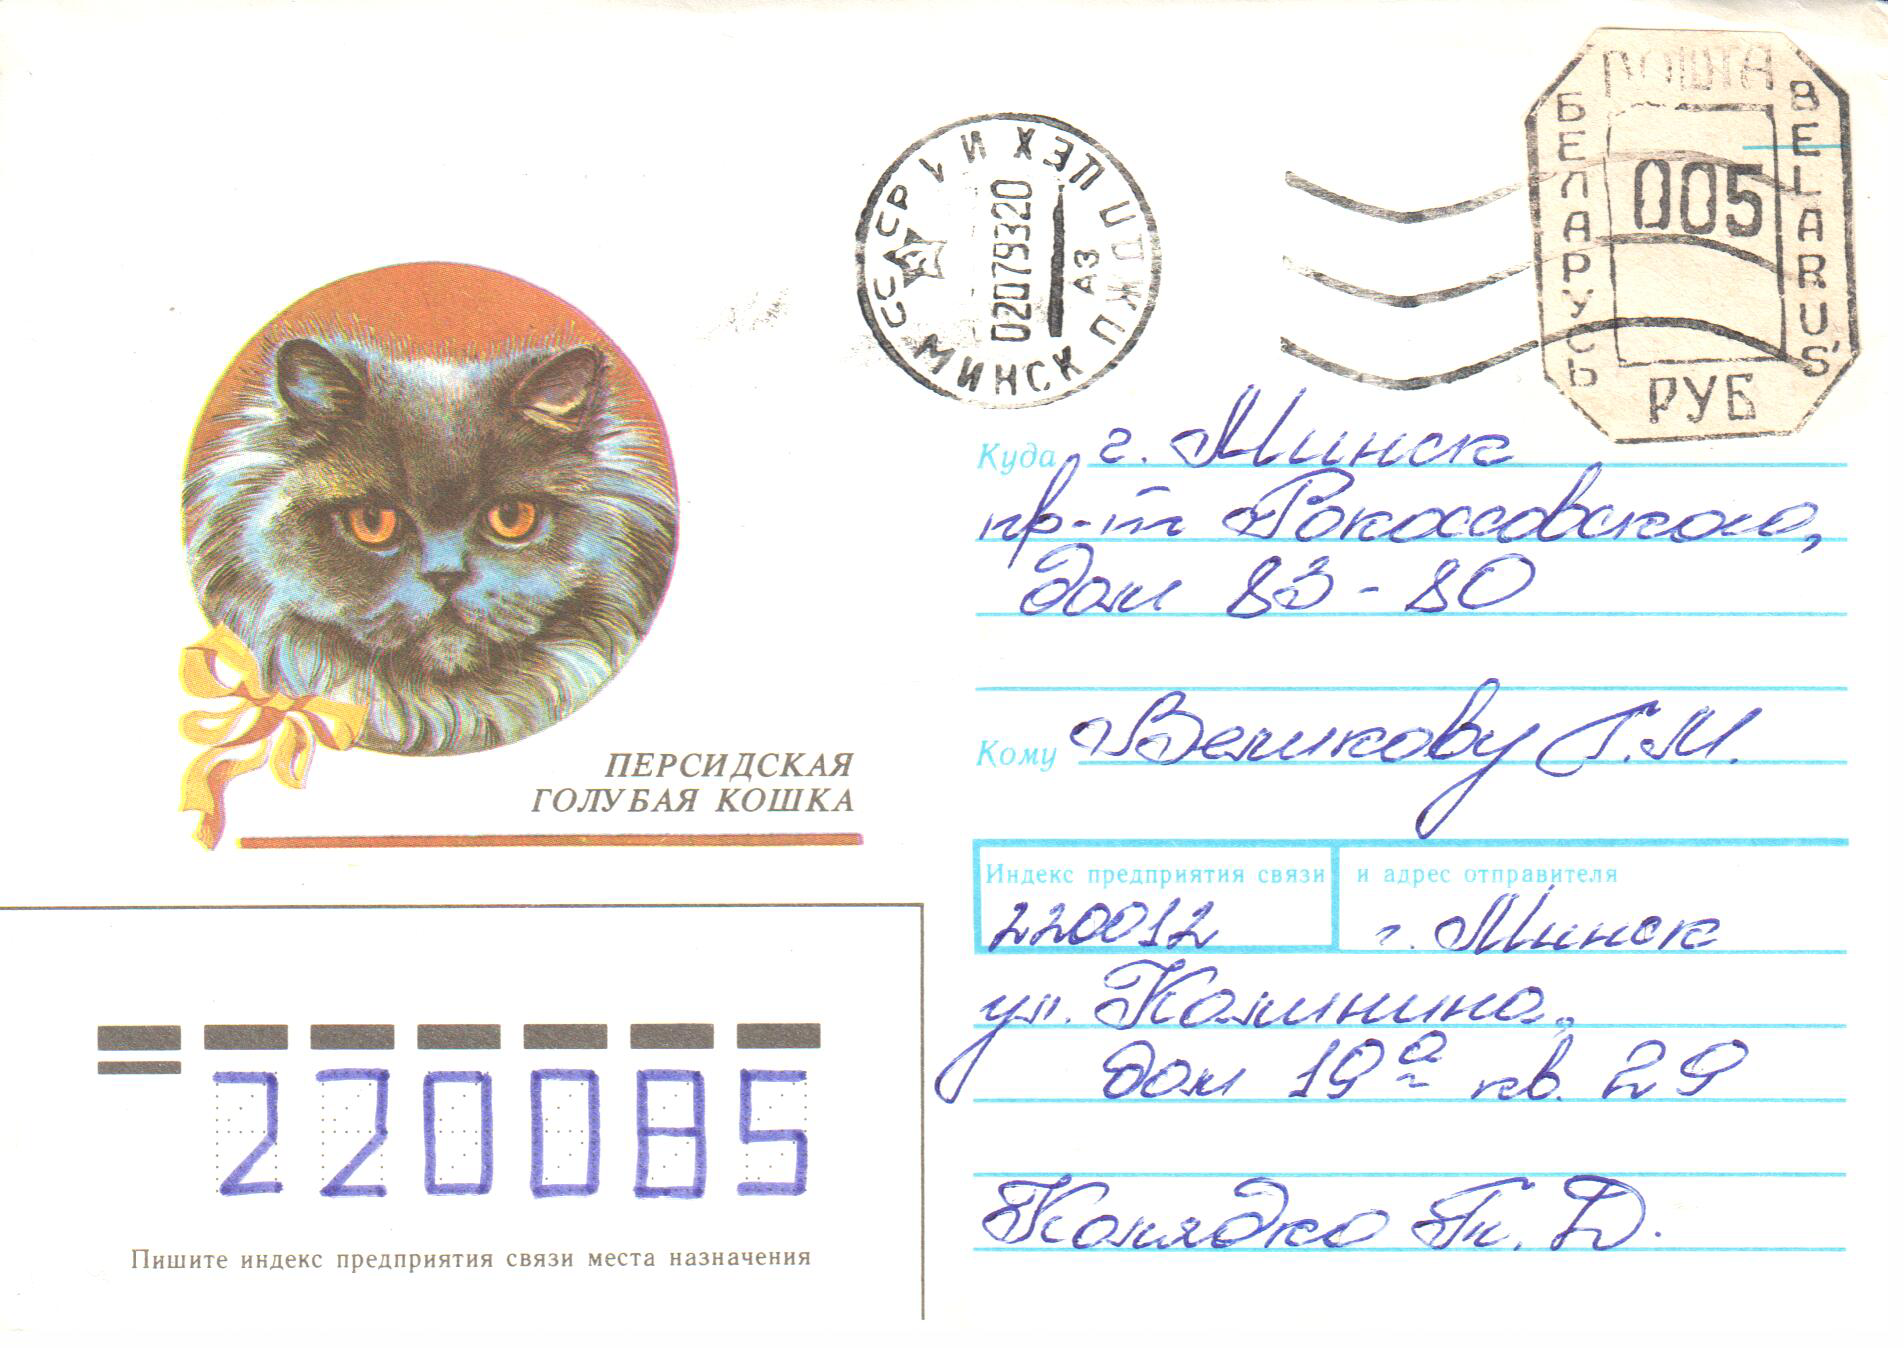 ПОШТА
БЕЛАРУСЬ
BELARUS'
005
РУБ
СССР
МИНСК ПЖДП
ЦЕХ И 1
02079320
А3
Куда г. Минск
пр-т Рокоссовского,
дом 83 - 80
Кому Великову Г.М.
ПЕРСИДСКАЯ
ГОЛУБАЯ КОШКА
Индекс предприятия связи и адрес отправителя
220012 г. Минск
ул. Калинина,
дом 19а кв. 29
Колядко Т. Д.
220085
Пишите индекс предприятия связи места назначения